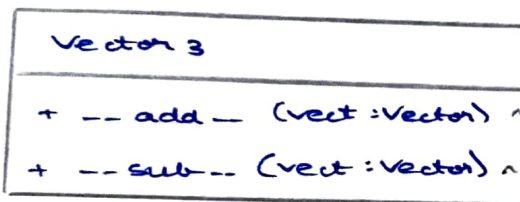 Vector 3
+ -- add -- (vect : Vector)
+ -- sub -- (vect : Vector)